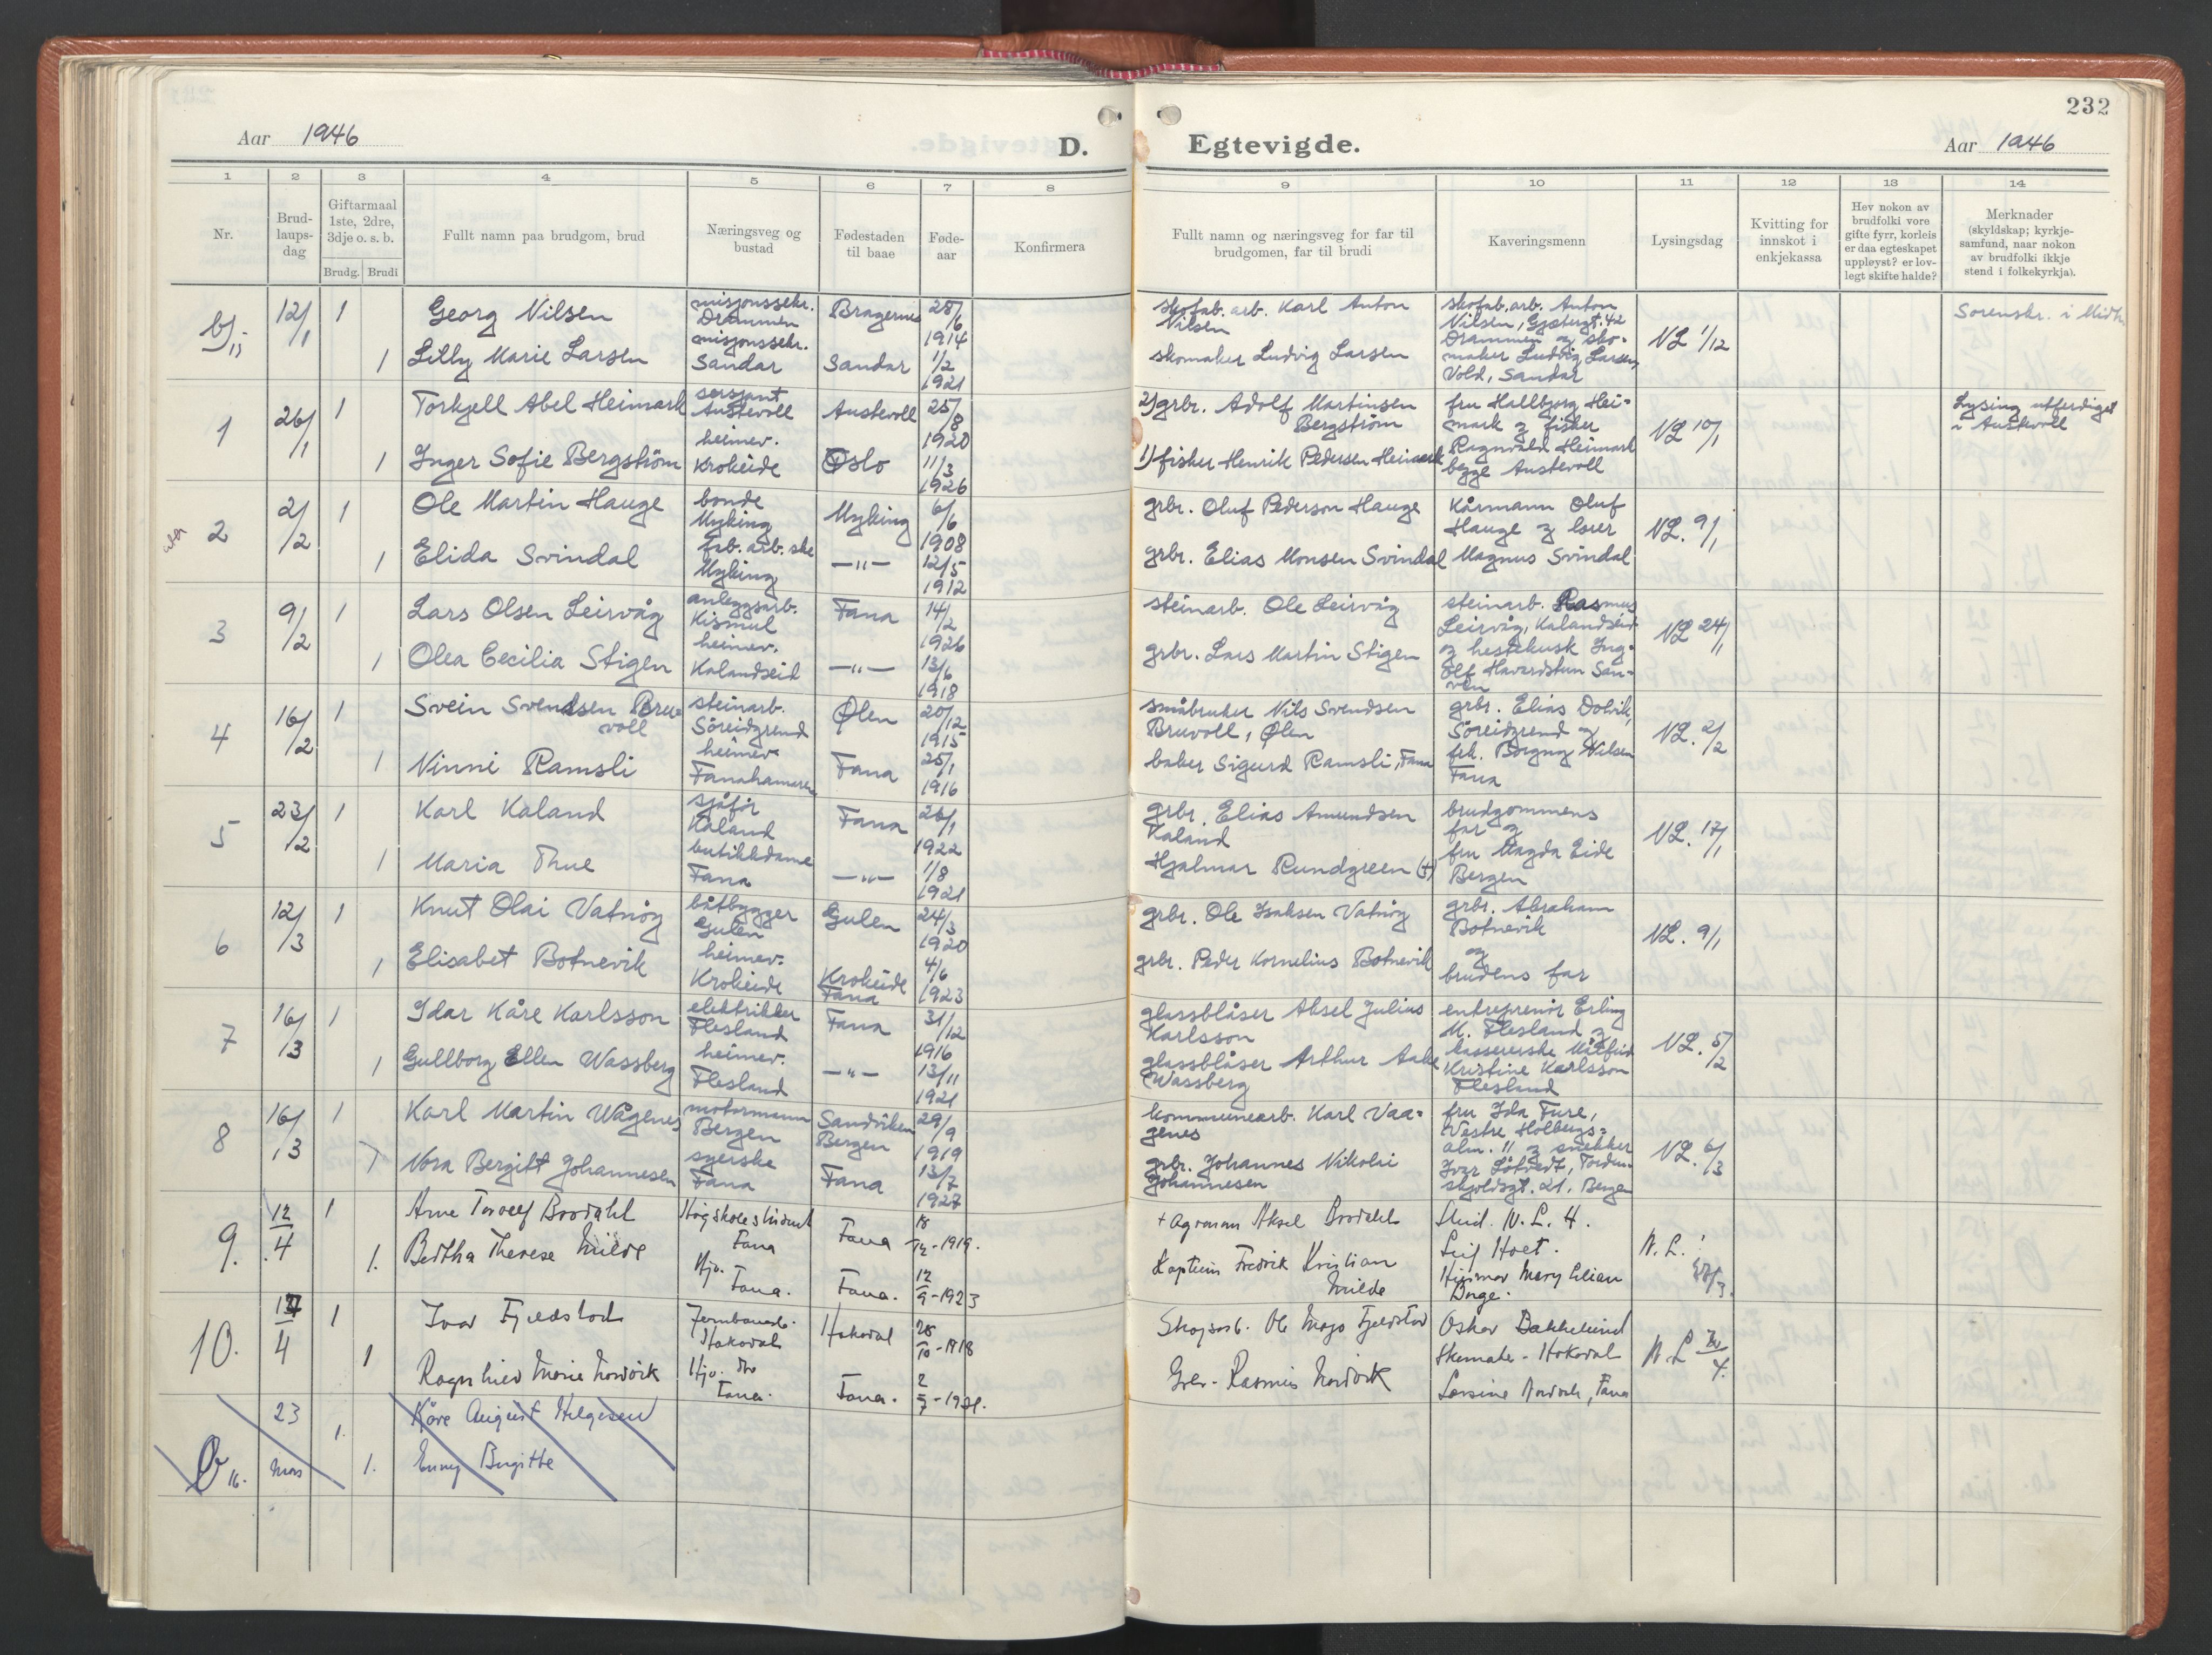 232
Aar 1946
D.
Egtevigde.
Aar 1946
1 2 3 4 5 6 7 8 9 10 11 12 13 14
Nr.
Brud-
laups-
dag
Giftarmaal
1ste, 2dre,
3dje o. s. b.
Brudg. Brudi
Fullt namn paa brudgom, brud
Næringsveg og
bustad
Fødestaden
til baae
Føde-
aar
Konfirmera
Fullt namn og næringsveg for far til
brudgomen, far til brudi
Kaveringsmenn
Lysingsdag
Kvitting for
innskot i
enkjekassa
Hev nokon av
brudfolki vore
gifte fyrr, korleis
er daa egteskapet
uppløyst? er lov-
legt skifte halde?
Merknader
(skyldskap; kyrkje-
samfund, naar nokon
av brudfolki ikkje
stend i folkekyrkja).
12/1 1 Georg Nilsen
misjonssekr.
Drammen
Bragernes
28/6
1914
skofab. arb. Karl Anton
Nilsen
skofab. arb. Anton
Nilsen, Gjetergt. 42
Drammen og sko-
maker Ludvig Larsen,
Vold, Sandar
VL 1/12
Sorenskr. i Midth.
1 Lilly Marie Larsen
misjonssekr.
Sandar
Sandar
1/2
1921
skomaker Ludvig Larsen
1
26/1 1 Torkjell Abel Heimark
sersjant
Austevoll
Austevoll
25/8
1920
2) grbr. Adolf Martinsen
Bergström
fru Hallbjorg Hei-
mark og fisker
Ragnvald Heimark
begge Austevoll
VL 10/1
Lysing utferdiget
i Austevoll
1 Inger Sofie Bergström
heimev.
Krokeide
Oslo
11/3
1926
1) fisker Henrik Pedersen Heimark
2
2/2 1 Ole Martin Hauge
bonde
Myking
Myking
6/6
1908
grbr. Oluf Pederson Hauge
Kårmann Oluf
Hauge og lærer
Magnus Svindal
VL. 9/1
1 Elida Svindal
fab. arb. ske
Myking
—"—
12/5
1912
grbr. Elias Monsen Svindal
3
9/2 1 Lars Olsen Leirvåg
anleggsarb.
Kismul
Fana
14/2
1926
steinarb. Ole Leirvåg
steinarb. Rasmus
Leirvåg, Kalandseid
og hestekusk Ing-
olf Havardstun San-
ven
VL 24/1
1 Olea Cecilia Stigen
heimev.
Kalandseid
—"—
13/6
1918
grbr. Lars Martin Stigen
4
16/2 1 Svein Svendsen Bru-
voll
steinarb.
Söreidgrend
Ølen
20/12
1915
småbruker Nils Svendsen
Bruvoll, Ølen
grbr. Elias Dolvik,
Söreidgrend og
frk. Borgny Nilsen
Fana
VL. 2/2
1 Ninni Ramsli
heimev.
Fanahamaren
Fana
25/1
1916
baker Sigurd Ramsli, Fana
5
23/2 1 Karl Kaland
sjåfør
Kaland
Fana
26/1
1922
grbr. Elias Amundsen
Kaland
brudgommens
far og
fru Magda Eide
Bergen
VL. 17/1
1 Maria Thue
butikkdame
Fana
—"—
1/8
1921
Hjalmar Rundgreen (+)
6
12/3 1 Knut Olai Vatnöy
båtbygger
Gulen
Gulen
24/3
1920
grbr. Ole Isaksen Vatnöy
grbr. Abraham
Botnevik
og
brudens far
VL. 9/1
1 Elisabet Botnevik
heimev.
Krokeide
Krokeide
Fana
4/6
1923
grbr. Peder Kornelius Botnevik
7
16/3 1 Idar Kåre Karlsson
elektrikker
Flesland
Fana
31/12
1916
glassblåser Aksel Julius
Karlsson
entreprenör Erling
M. Flesland og
kassererske Målfrid
Kristine Karlsson
Flesland
VL. 5/2
1 Gullborg Ellen Wassberg
heimev.
Flesland
—"—
13/11
1921
glassblåser Arthur Aake
Wassberg
8
16/3 1 Karl Martin Vågenes
motormann
Bergen
Sandviken
Bergen
29/9
1919
kommunearb. Karl Vaa-
genes
fru Ida Ture,
Vestre Holbergs-
alm. 11 og snekker
Ivar Låtvedt, Torden-
skjoldsgt. 21, Bergen
VL. 6/3
1 Nora Bergitt Johannesen
syerske
Fana
Fana
13/7
1927
grbr. Johannes Nikolai
Johannesen
9.
12/4 1 Arne Torolf Brodahl
Høgskolestudent
Fana
Fana
18/12-1919.
+ Agronom Aksel Brodahl
Stud. N.L.H.
Leif Hoet.
Hjelmar Mary Lilian
Borge.
N. L.
1. Bertha Therese Milde
Hjv.
Fana.
Fana.
12/9-1923
Kaptein Fredrik Kristian
Milde
10.
27/4 1 Ivar Fjeldstad
Jernbanearb.
Hakadal
Hakadal
28/10-1918
Skogsarb. Ole Majo Fjeldstad
Oskar Bakkelund
Skomaker - Hakadal
Larsine Nordvik, Fana
N. L
1 Ragnhild Marie Nordvik
Hjv.
Fana.
Fana.
2/7-1921.
Gbr. Rasmus Nordvik
23 1. Kåre August Helgesen
mars 1. Enny Birgitte